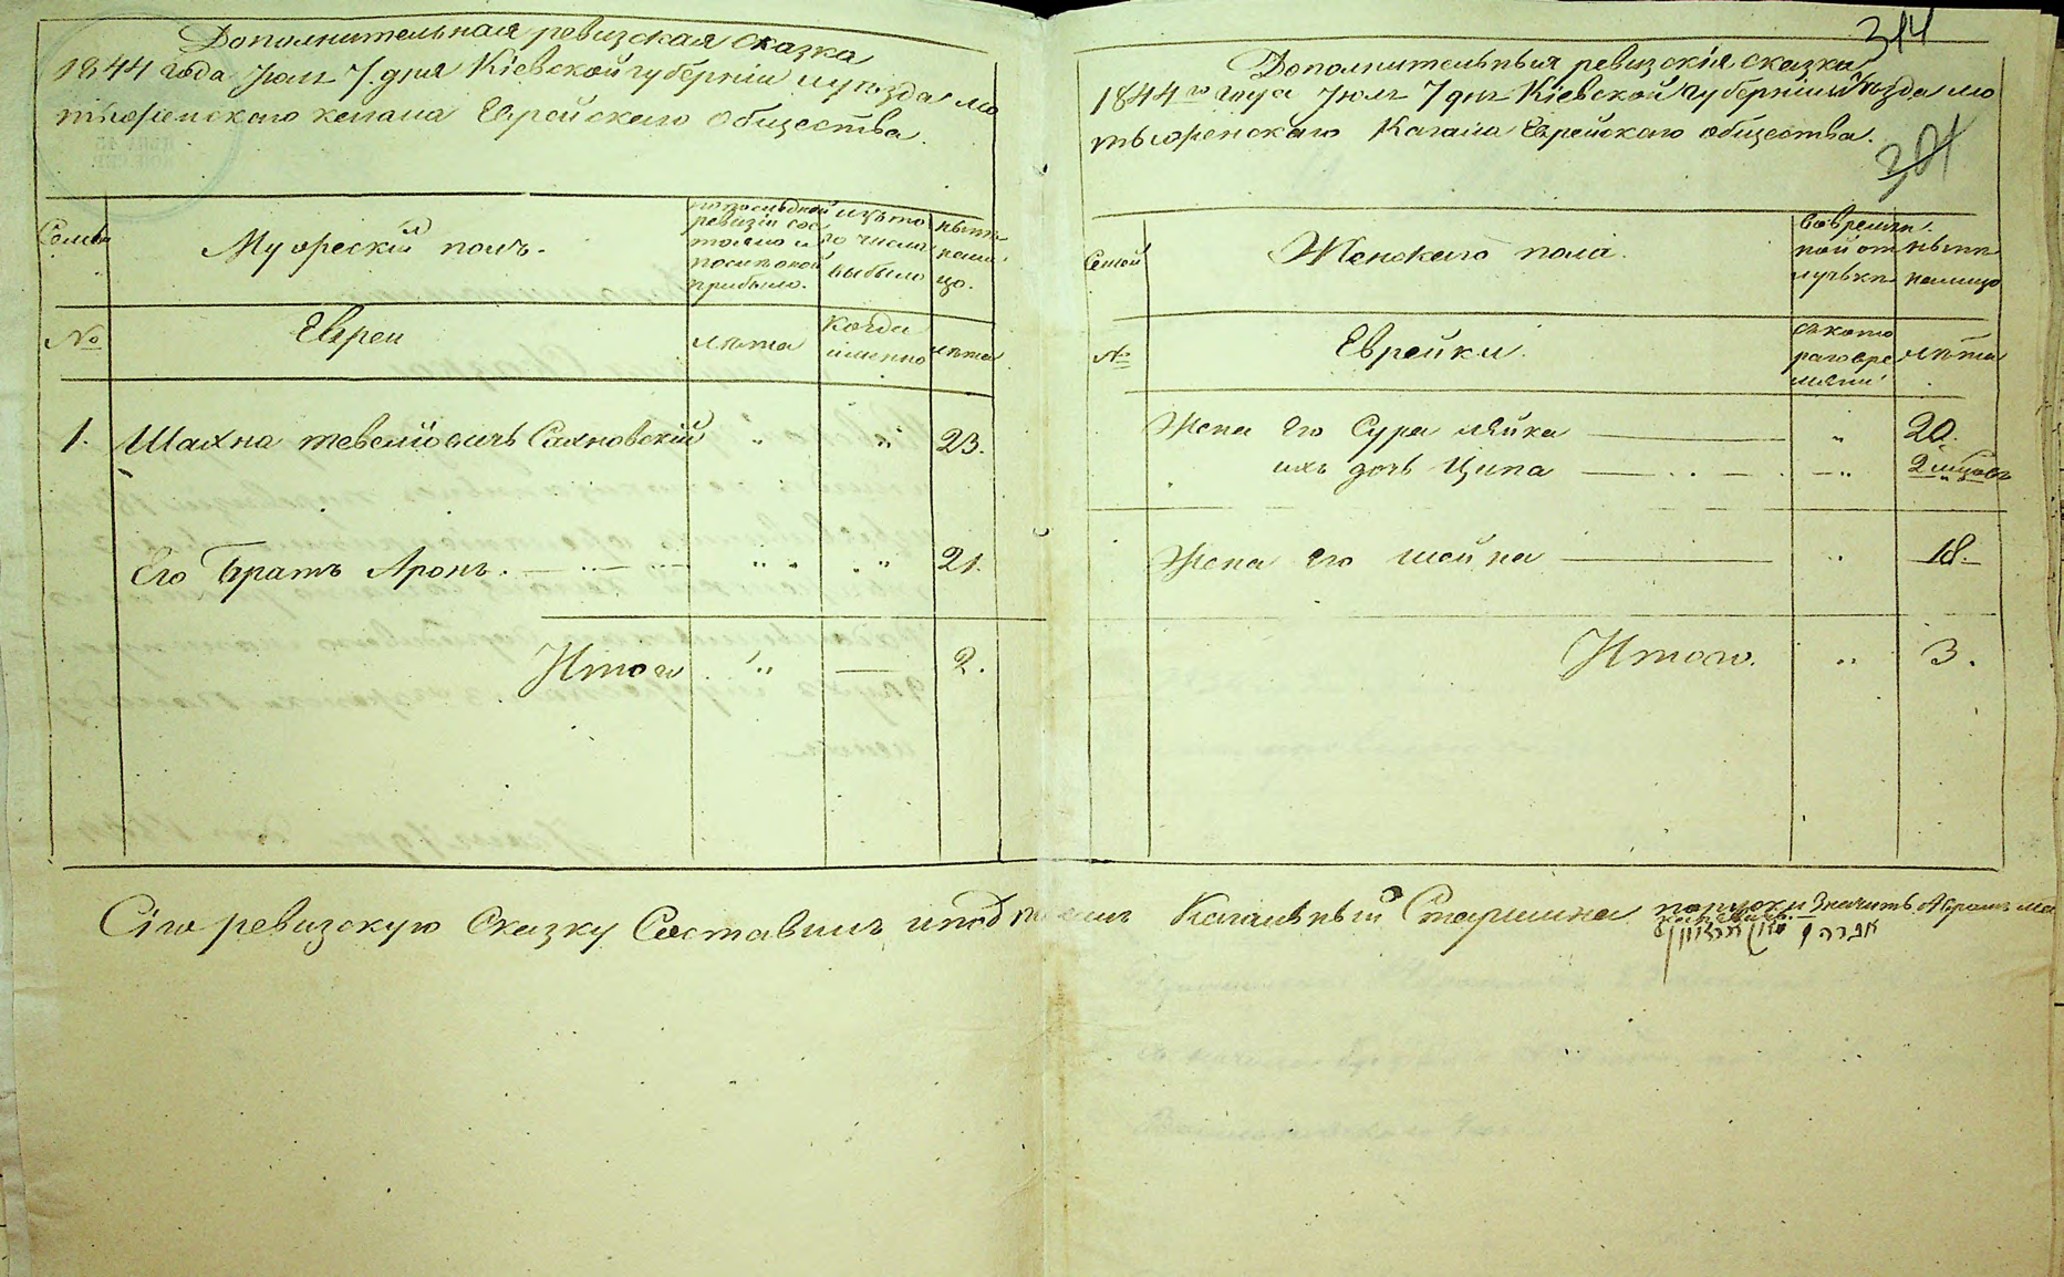 Дополнительная ревизская сказка
1844 года Июля 7. дня Кіевской губерніи и уѣзда Мо
тыженскаго кагала Еврейскаго общества.
Семьи
Мужескій полъ.
по послѣдной ревизіи сос тояло и послѣ оной прибыло.
изъ то го числа выбыло
нынѣ на ли цо.
№
Евреи
лѣта
когда именно
лѣта
1. Шахна Тевелиовичъ Сахновскій " " 23.
Его Братъ Аронъ. " " 21.
Итого " — 2.
314
Дополнительныя ревизскія сказки
1844го года Июля 7 дня Кіевской губерніи и уѣзда Мо
тыженскаго Кагала Еврейскаго общества.
301
Семьи
Женскаго пола.
во времян ной от лучькѣ
нынѣ на лицо
№
Еврейки.
съ кото раго вре мяни
лѣта
Жена его Сура Лейка " 20.
ихъ дочь Ципа " 2
Жена его Шейна " 18.
Итого. " 3.
Сію ревизскую Сказку Составилъ и Кагальный Старшина по руски значитъ Абрамъ
אברהם